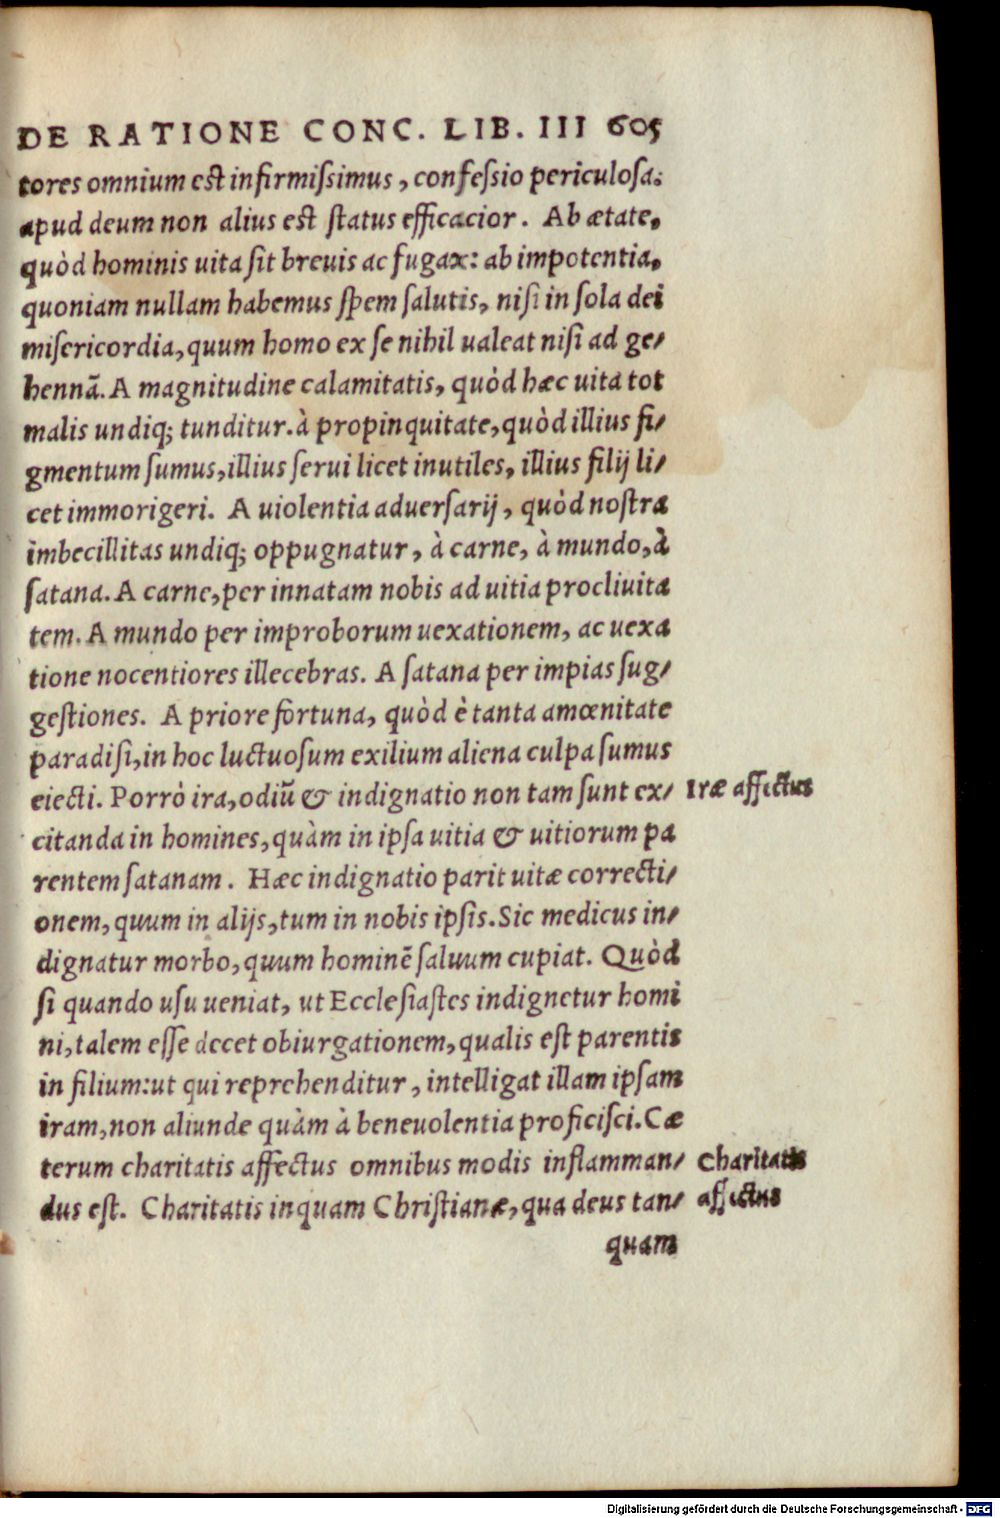 DE RATIONE CONC. LIB. III 605
tores omnium est infirmiſsimus, confeſsio periculoſa:
apud deum non alius est ſtatus efficacior. Ab ætate,
quòd hominis uita ſit breuis ac fugax: ab impotentia,
quoniam nullam habemus ſpem ſalutis, niſi in ſola dei
miſericordia, quum homo ex ſe nihil ualeat niſi ad ge/
hennã. A magnitudine calamitatis, quòd hæc uita tot
malis undiq; tunditur. à propinquitate, quòd illius fi/
gmentum ſumus, illius ſerui licet inutiles, illius filij li/
cet immorigeri. A uiolentia aduerſarij, quòd noſtra
imbecillitas undiq; oppugnatur, à carne, à mundo, à
ſatana. A carne, per innatam nobis ad uitia procliuita
tem. A mundo per improborum uexationem, ac uexa
tione nocentiores illecebras. A ſatana per impias ſug/
geſtiones. A priore fortuna, quòd è tanta amœnitate
paradiſi, in hoc luctuoſum exilium aliena culpa ſumus
eiecti. Porrò ira, odiũ & indignatio non tam ſunt ex/
Iræ affectus
citanda in homines, quàm in ipſa uitia & uitiorum pa
rentem ſatanam. Hæc indignatio parit uitæ correcti/
onem, quum in alijs, tum in nobis ipſis. Sic medicus in/
dignatur morbo, quum hominẽ ſaluum cupiat. Quòd
ſi quando uſu ueniat, ut Eccleſiaſtes indignetur homi
ni, talem eſſe decet obiurgationem, qualis eſt parentis
in filium: ut qui reprehenditur, intelligat illam ipſam
iram, non aliunde quàm à beneuolentia proficiſci. Cæ
terum charitatis affectus omnibus modis inflamman/
Charitatis
dus eſt. Charitatis inquam Chriſtianæ, qua deus tan/
affectus
quam
Digitalisierung gefördert durch die Deutsche Forschungsgemeinschaft - DFG